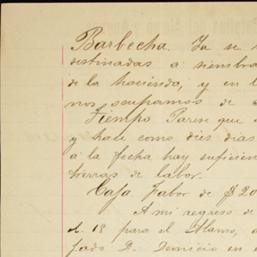 Barbecha. Ya se h
destinadas a siembra
de la hacienda, y en l
nos ocupamos de
Tiempo Parece que
y hace como diez dias
a la fecha hay suficien
tierras de labor.
Caja. Fabor de $ 20
A mi regreso de
18 para el Alamo,
D. Dionicio en